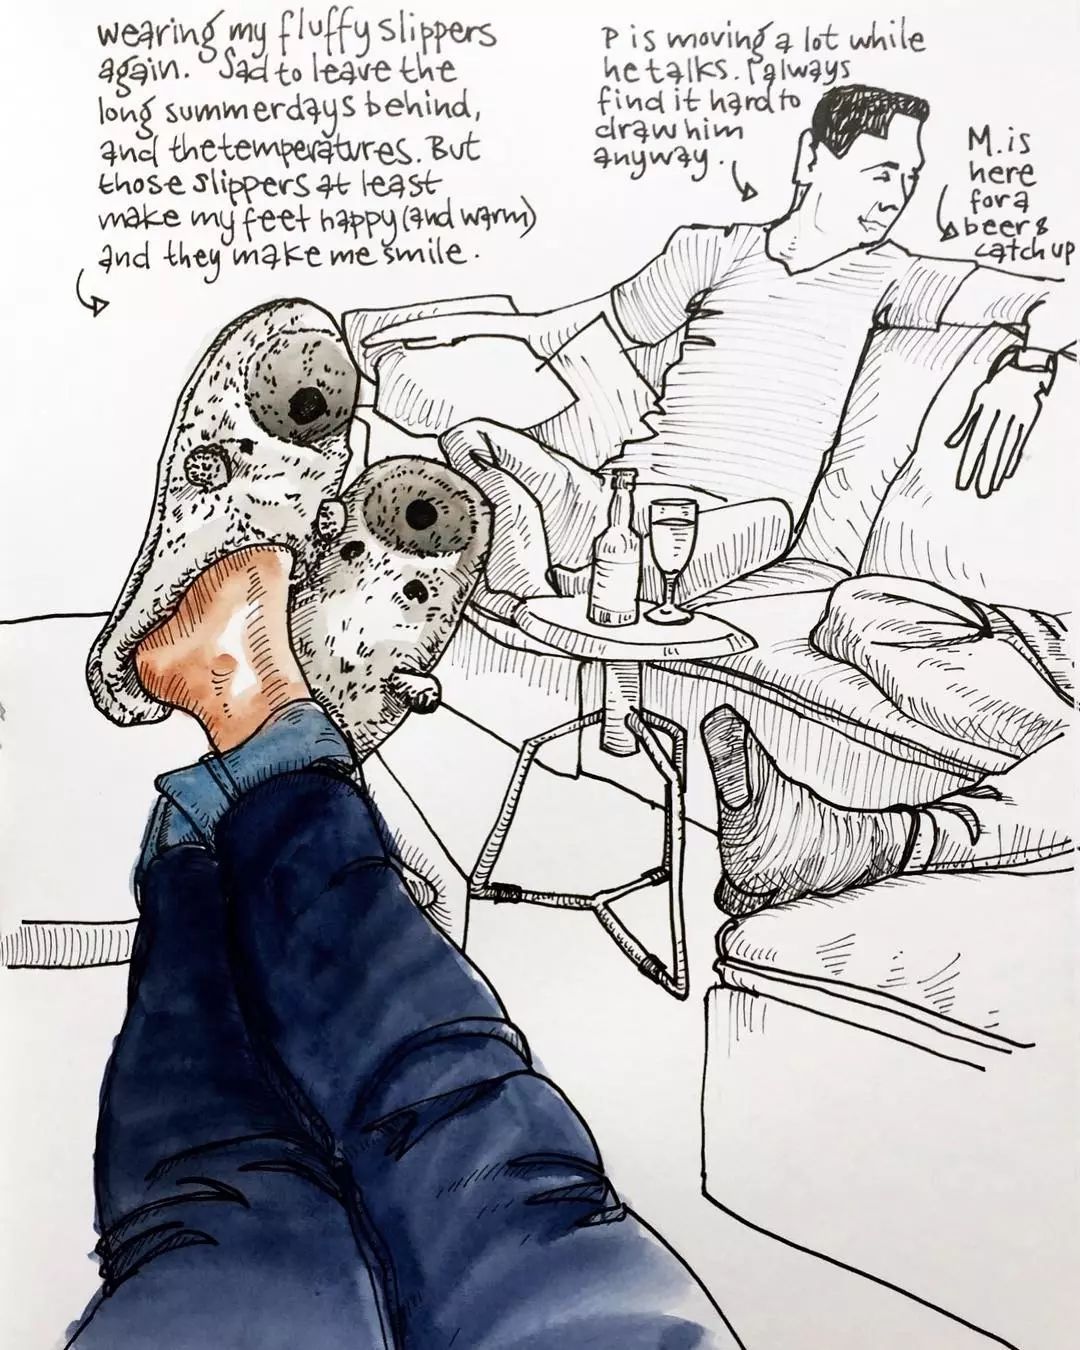 wearing my fluffy slippers
again. Sad to leave the
long summerdays behind,
and the temperatures. But
those slippers at least
make my feet happy (and warm)
and they make me smile.
P is moving a lot while
he talks. I always
find it hard to
draw him
anyway.
M. is
here
for a
beer &
catch up